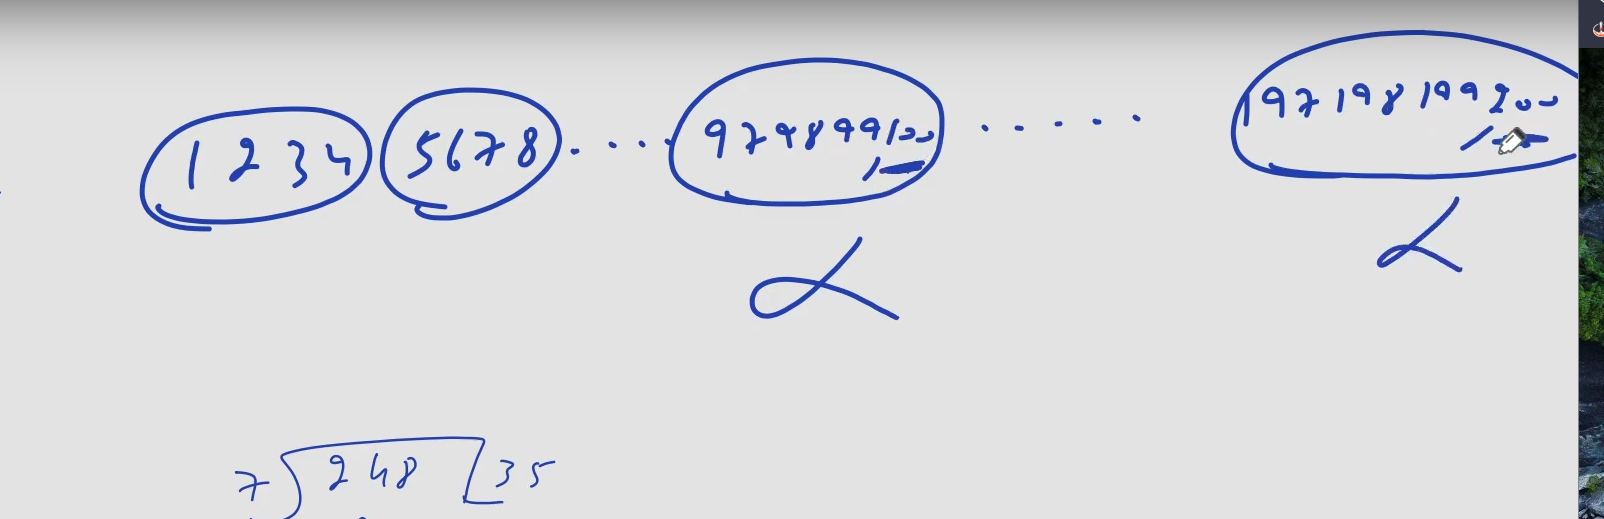 1 2 3 4 5 6 7 8 . . . . 97 98 99 100 . . . . . 197 198 199 200
α α
7 ) 248 [ 35